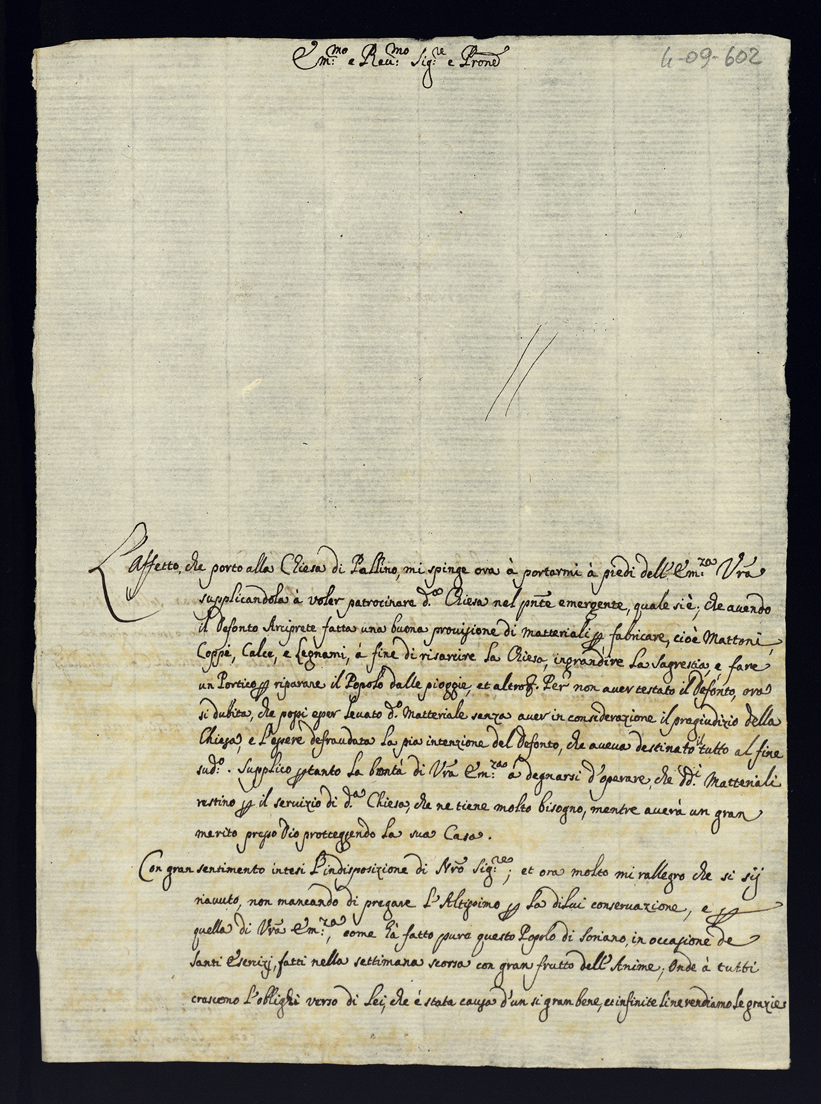 Em.mo e Reu.mo Sig.re e Prone
4-09-602
L'Affetto, che porto alla Chiesa di Pallino, mi spinge ora à portarmi à piedi dell'Em.za Vrã
supplicandola à voler patrocinare d.a Chiesa nel pñte emergente, quale si è; che auendo
il Defonto Arciprete fatta una buona provisione di matteriali p fabricare, cioè Mattoni,
Coppi, Calce, e Legnami, à fine di risarcire la Chiesa, ingrandire la Sagrestia, e fare
un Portico p riparare il Popolo dalle pioggie, et altro &. Per non aver testato il Defonto, ora
si dubita, che possi esser levato d.o Matteriale senza aver in considerazione il pregiudizio della
Chiesa, e l'essere defraudata la pia intenzione del Defonto, che aueua destinato il tutto al fine
sud.o. Supplico p tanto la bontà di Vrã Em.za à degnarsi d'operare, che dd.i Matteriali
restino p il servizio di d.a Chiesa, che ne tiene molto bisogno, mentre auerà un gran
merito presso Dio proteggendo la sua Casa.
Con gran sentimento intesi l'indisposizione di Nrõ Sig.re; et ora molto mi rallegro che si sij
riavuto, non mancando di pregare l'Altissimo p la dilui conservazione, e p
quella di Vrã Em.za, come hà fatto pure questo Popolo di Soriano, in occasione de
Santi Esercizj, fatti nella settimana scorsa con gran frutto dell'Anime, Onde à tutti
crescono l'oblighi verso di Lei, che è stata causa d'un si gran bene, et infinite li ne rendiamo le grazie